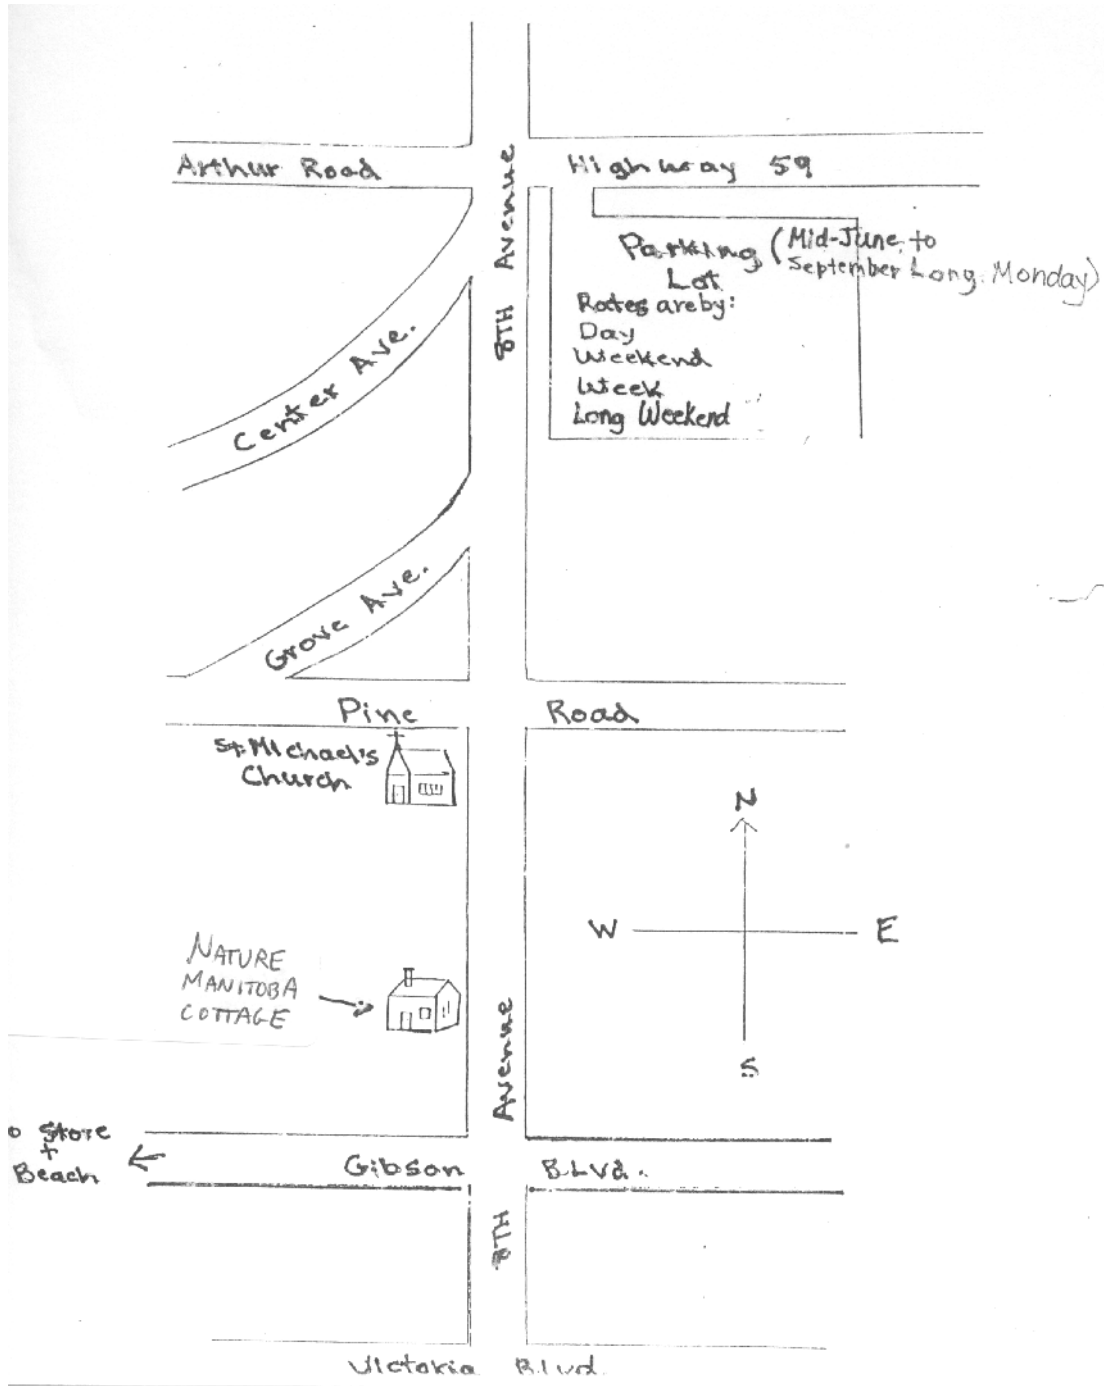 Arthur Road
Highway 59
8TH Avenue
Parking Lot
(Mid-June to
September Long Monday)
Rates are by:
Day
Weekend
Week
Long Weekend
Center Ave.
Grove Ave.
Pine Road
St. Michael's
Church
N
W E
S
NATURE
MANITOBA
COTTAGE
Avenue
o Store
+
Beach
Gibson BLvd.
8TH
Victoria Blvd.